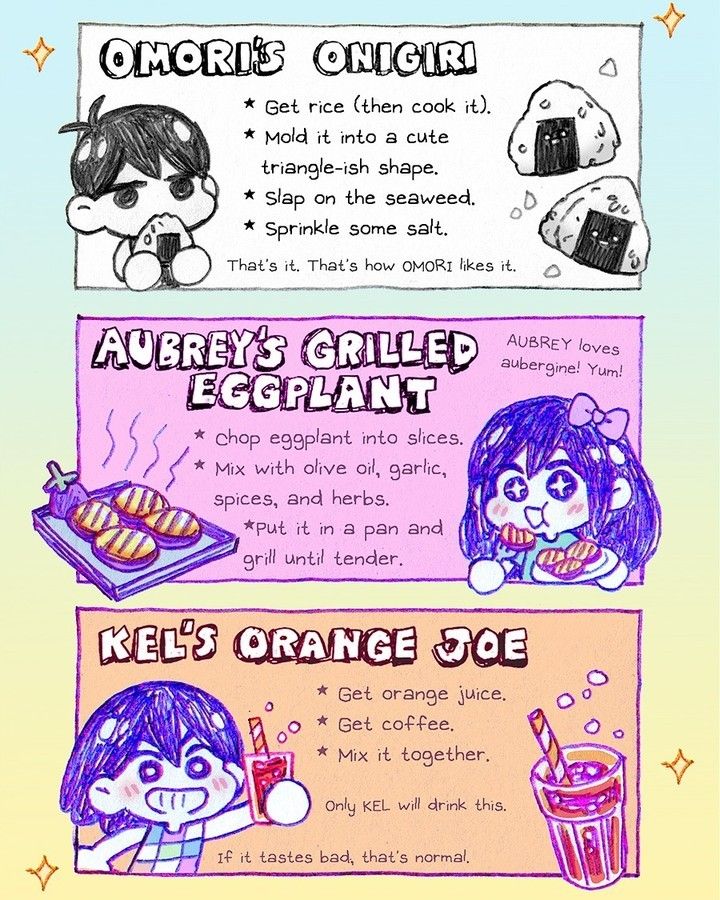 OMORI'S ONIGIRI
★ Get rice (then cook it).
★ Mold it into a cute
triangle-ish shape.
★ Slap on the seaweed.
★ Sprinkle some salt.
That's it. That's how OMORI likes it.
AUBREY'S GRILLED
EGGPLANT
AUBREY loves
aubergine! Yum!
★ Chop eggplant into slices.
★ Mix with olive oil, garlic,
spices, and herbs.
★Put it in a pan and
grill until tender.
KEL'S ORANGE JOE
★ Get orange juice.
★ Get coffee.
★ Mix it together.
Only KEL will drink this.
If it tastes bad, that's normal.